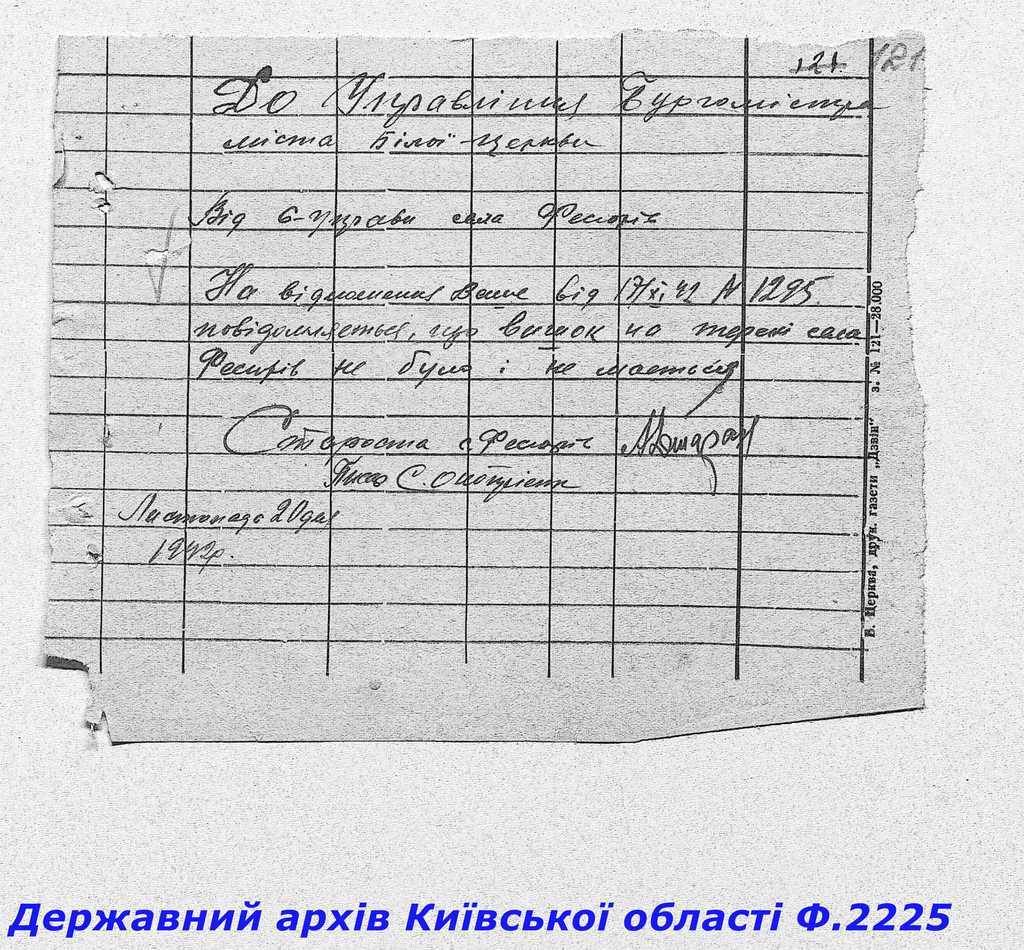 121. 121
До Управління Бургомістра
міста Білої-Церкви
Від С-управи села
На відношення Ваше від 17/XI 42 № 1295
повідомляється, що вишок на терені села
не було і не мається
Староста с.
С.
Листопада 20 дня
1942р.
Б. Церква, друк. газети „Дзвін“ з. № 121—28.000
Державний архів Київської області Ф.2225